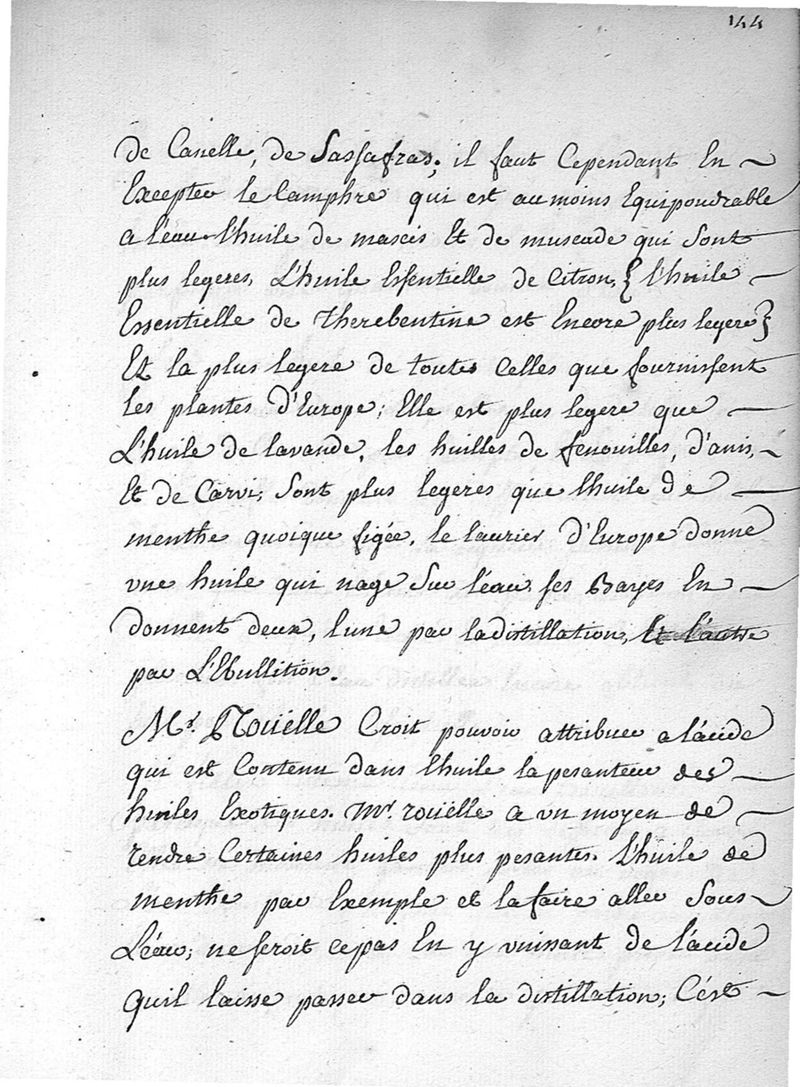 144
de Canelle, de Sassafras; il faut Cependant En
Excepter le Camphre qui est au moins Equipondrable
a l'eau. l'huile de mascis Et de muscade qui sont
plus legeres, L'huile Essentielle de Citron, { l'huile
Essentielle de therebentine est Encore plus legere }
Et la plus legere de toutes Celles que fournissent
les plantes d'Europe; Elle est plus legere que
L'huile de lavande, les huilles de fenouilles, d'anis,
Et de Carvi; sont plus legeres que l'huile de
menthe quoique figée, le laurier d'Europe donne
vne huile qui nage sur l'eau, ses Bayes En
donnent deux, l'une par la distillation, Et l'autre
par L'Ebullition.
Mr. Roüelle Croit pouvoir attribuer a l'acide
qui est Contenu dans l'huile la pesanteur des
huiles Exotiques. Mr. roüelle a vn moyen de
rendre Certaines huiles plus pesantes. l'huile de
menthe par Exemple et la faire aller sous
L'éau; ne seroit ce pas En y vnissant de l'acide
quil laisse passer dans la distillation; C'est